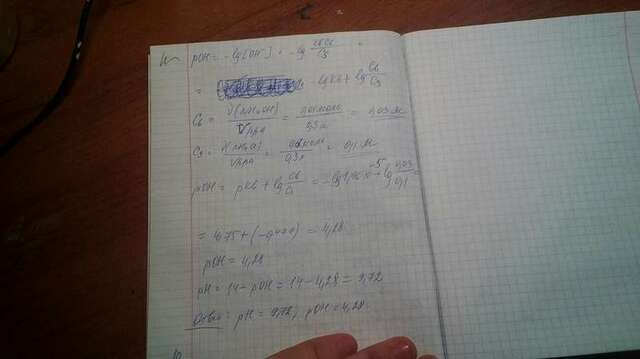 pOH = -lg[OH⁻] = -lg KbCb/Cs
= -lgKb + lg Cb/Cs
Cb = ν(NH₄OH)/Vр-ра = 0,01моль/0,3л = 0,03 М
Cs = ν(NH₄Cl)/Vр-ра = моль/0,3л = 0,1 М
pOH = pKb + lg Cb/Cs = -lg 1,76·10⁻⁵ lg 0,03/0,1 =
= 4,75 + (-0,477) = 4,28
pOH = 4,28
pH = 14 - pOH = 14 - 4,28 = 9,72
Ответ: pH = 9,72, pOH = 4,28